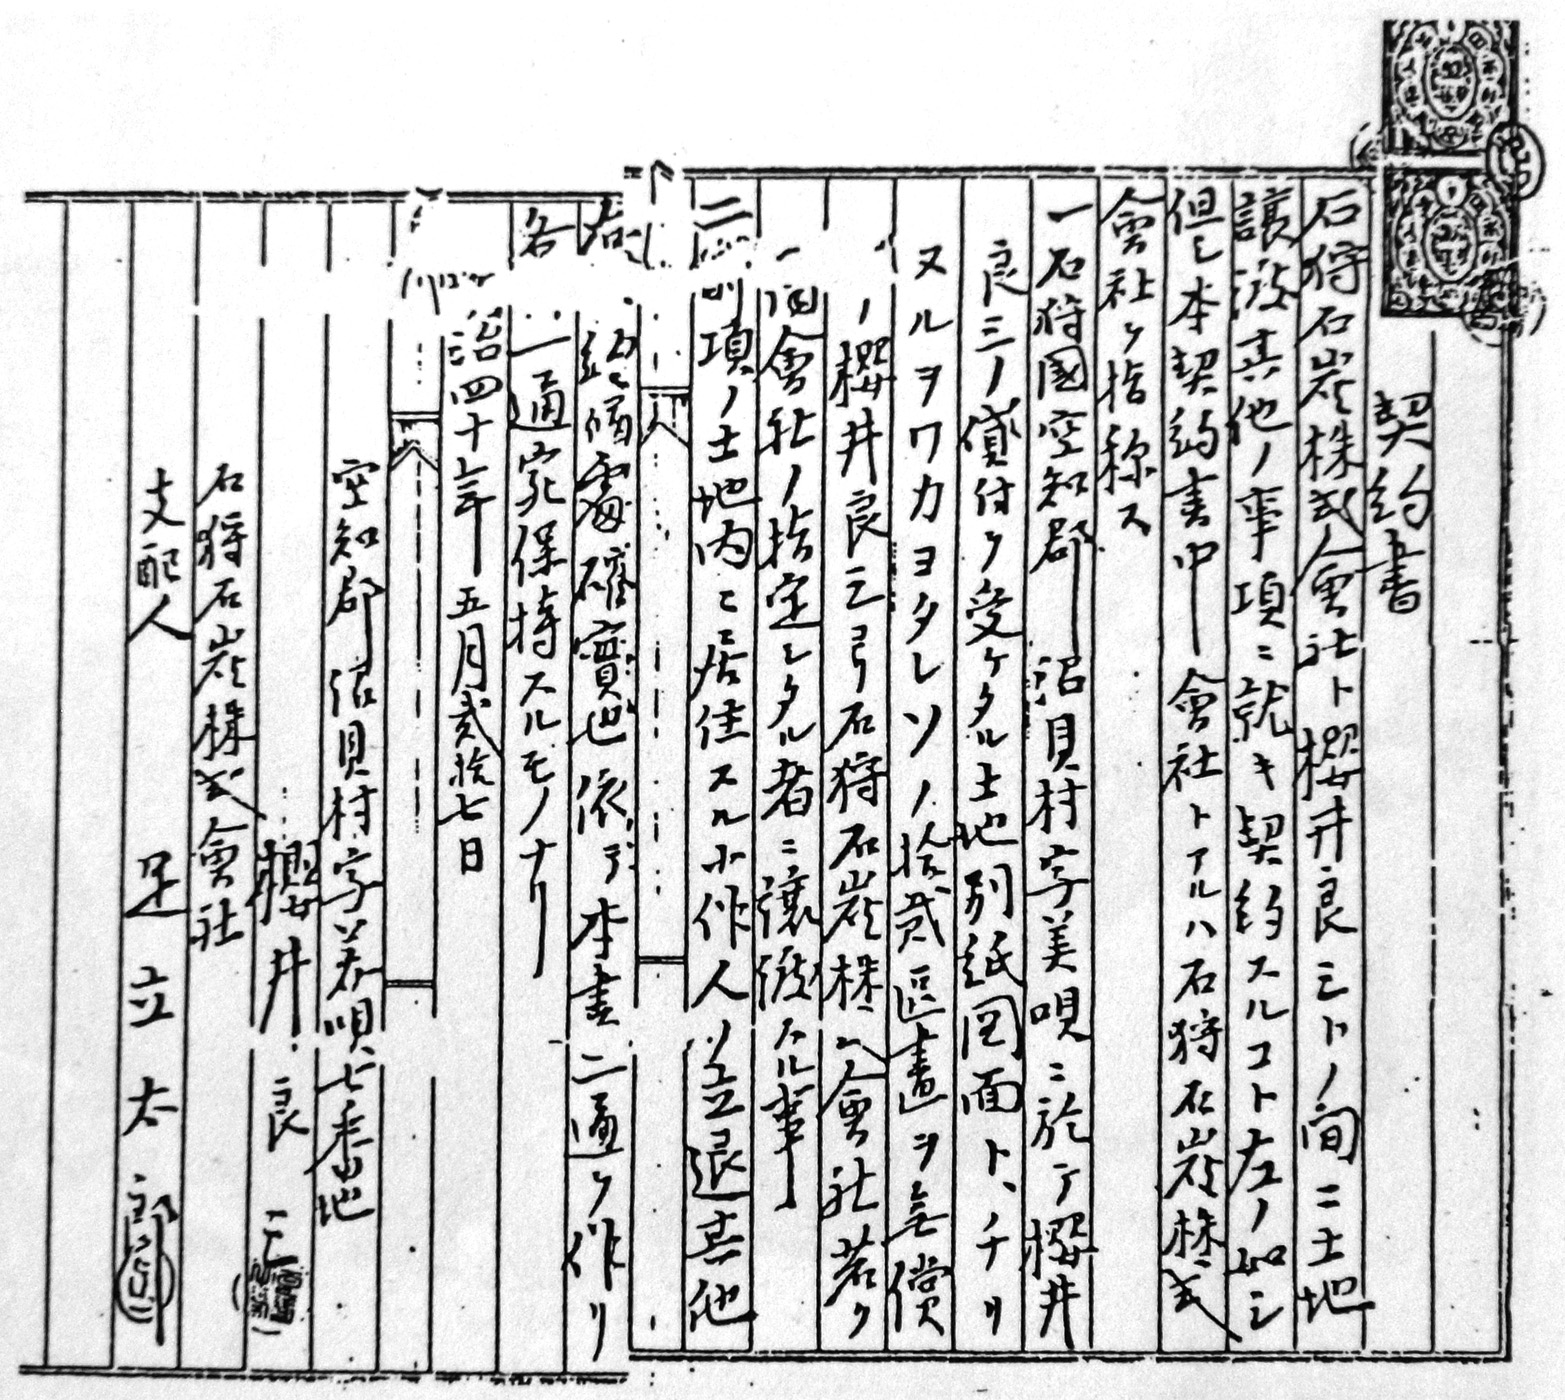 契約書
石狩石炭株式會社ト櫻井良三トノ間ニ土地
譲渡其他ノ事項ニ就キ契約スルコト左ノ如シ
但シ本契約書中會社トアルハ石狩石炭株式
會社ヲ指称ス
一石狩國空知郡沼貝村字美唄ニ於テ櫻井
良三ノ貸付ヲ受ケタル土地別紙図面ト、チリ
ヌルヲワカヨタレソノ拾貳區畫ヲ無償
ノ櫻井良三ヨリ石狩石炭株式會社若ク
會社ノ指定シタル者ニ譲渡スル事
二 前項ノ土地内ニ居住スル小作人ノ立退其他
右 確實也依テ本書二通ヲ作リ
各 一通宛保持スルモノナリ
治四十三年五月貳拾七日
空知郡沼貝村字美唄七番地
櫻井良三
石狩石炭株式會社
支配人 足立太郎